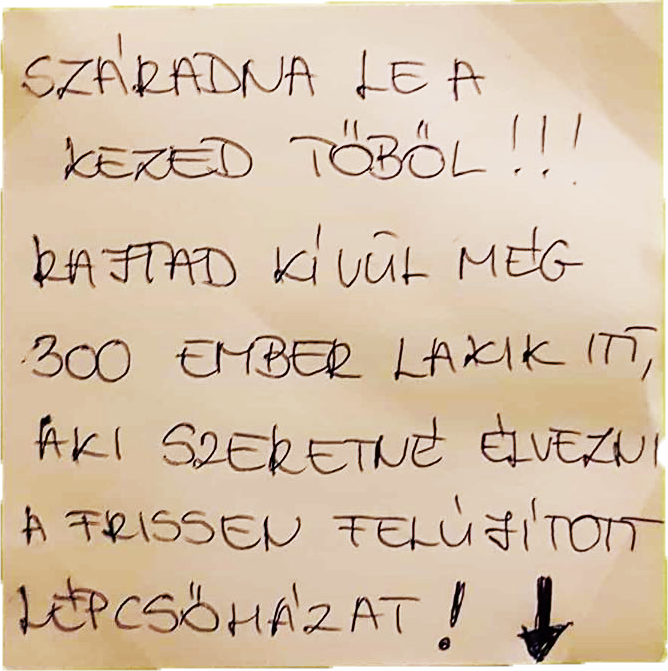 SZÁRADNA LE A
KEZED TŐBŐL!!!
RAJTAD KÍVŰL MÉG
300 EMBER LAKIK ITT,
AKI SZERETNÉ ÉLVEZNI
A FRISSEN FELÚJÍTOTT
LÉPCSŐHÁZAT! ↓